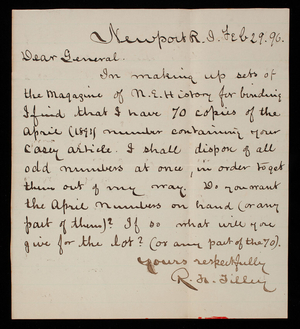 Newport R. I. Feb 29. 96.
Dear General.
In making up sets of
the Magazine of N. E. History for binding
I find that I have 70 copies of the
April (1891) number containing your
Casey article. I shall dispose of all
odd numbers at once, in order to get
them out of my way. Do you want
the April numbers on hand (or any
part of them)? If so what will you
give for the lot? (or any part of the 70).
Yours respectfully
R. H. Tilley